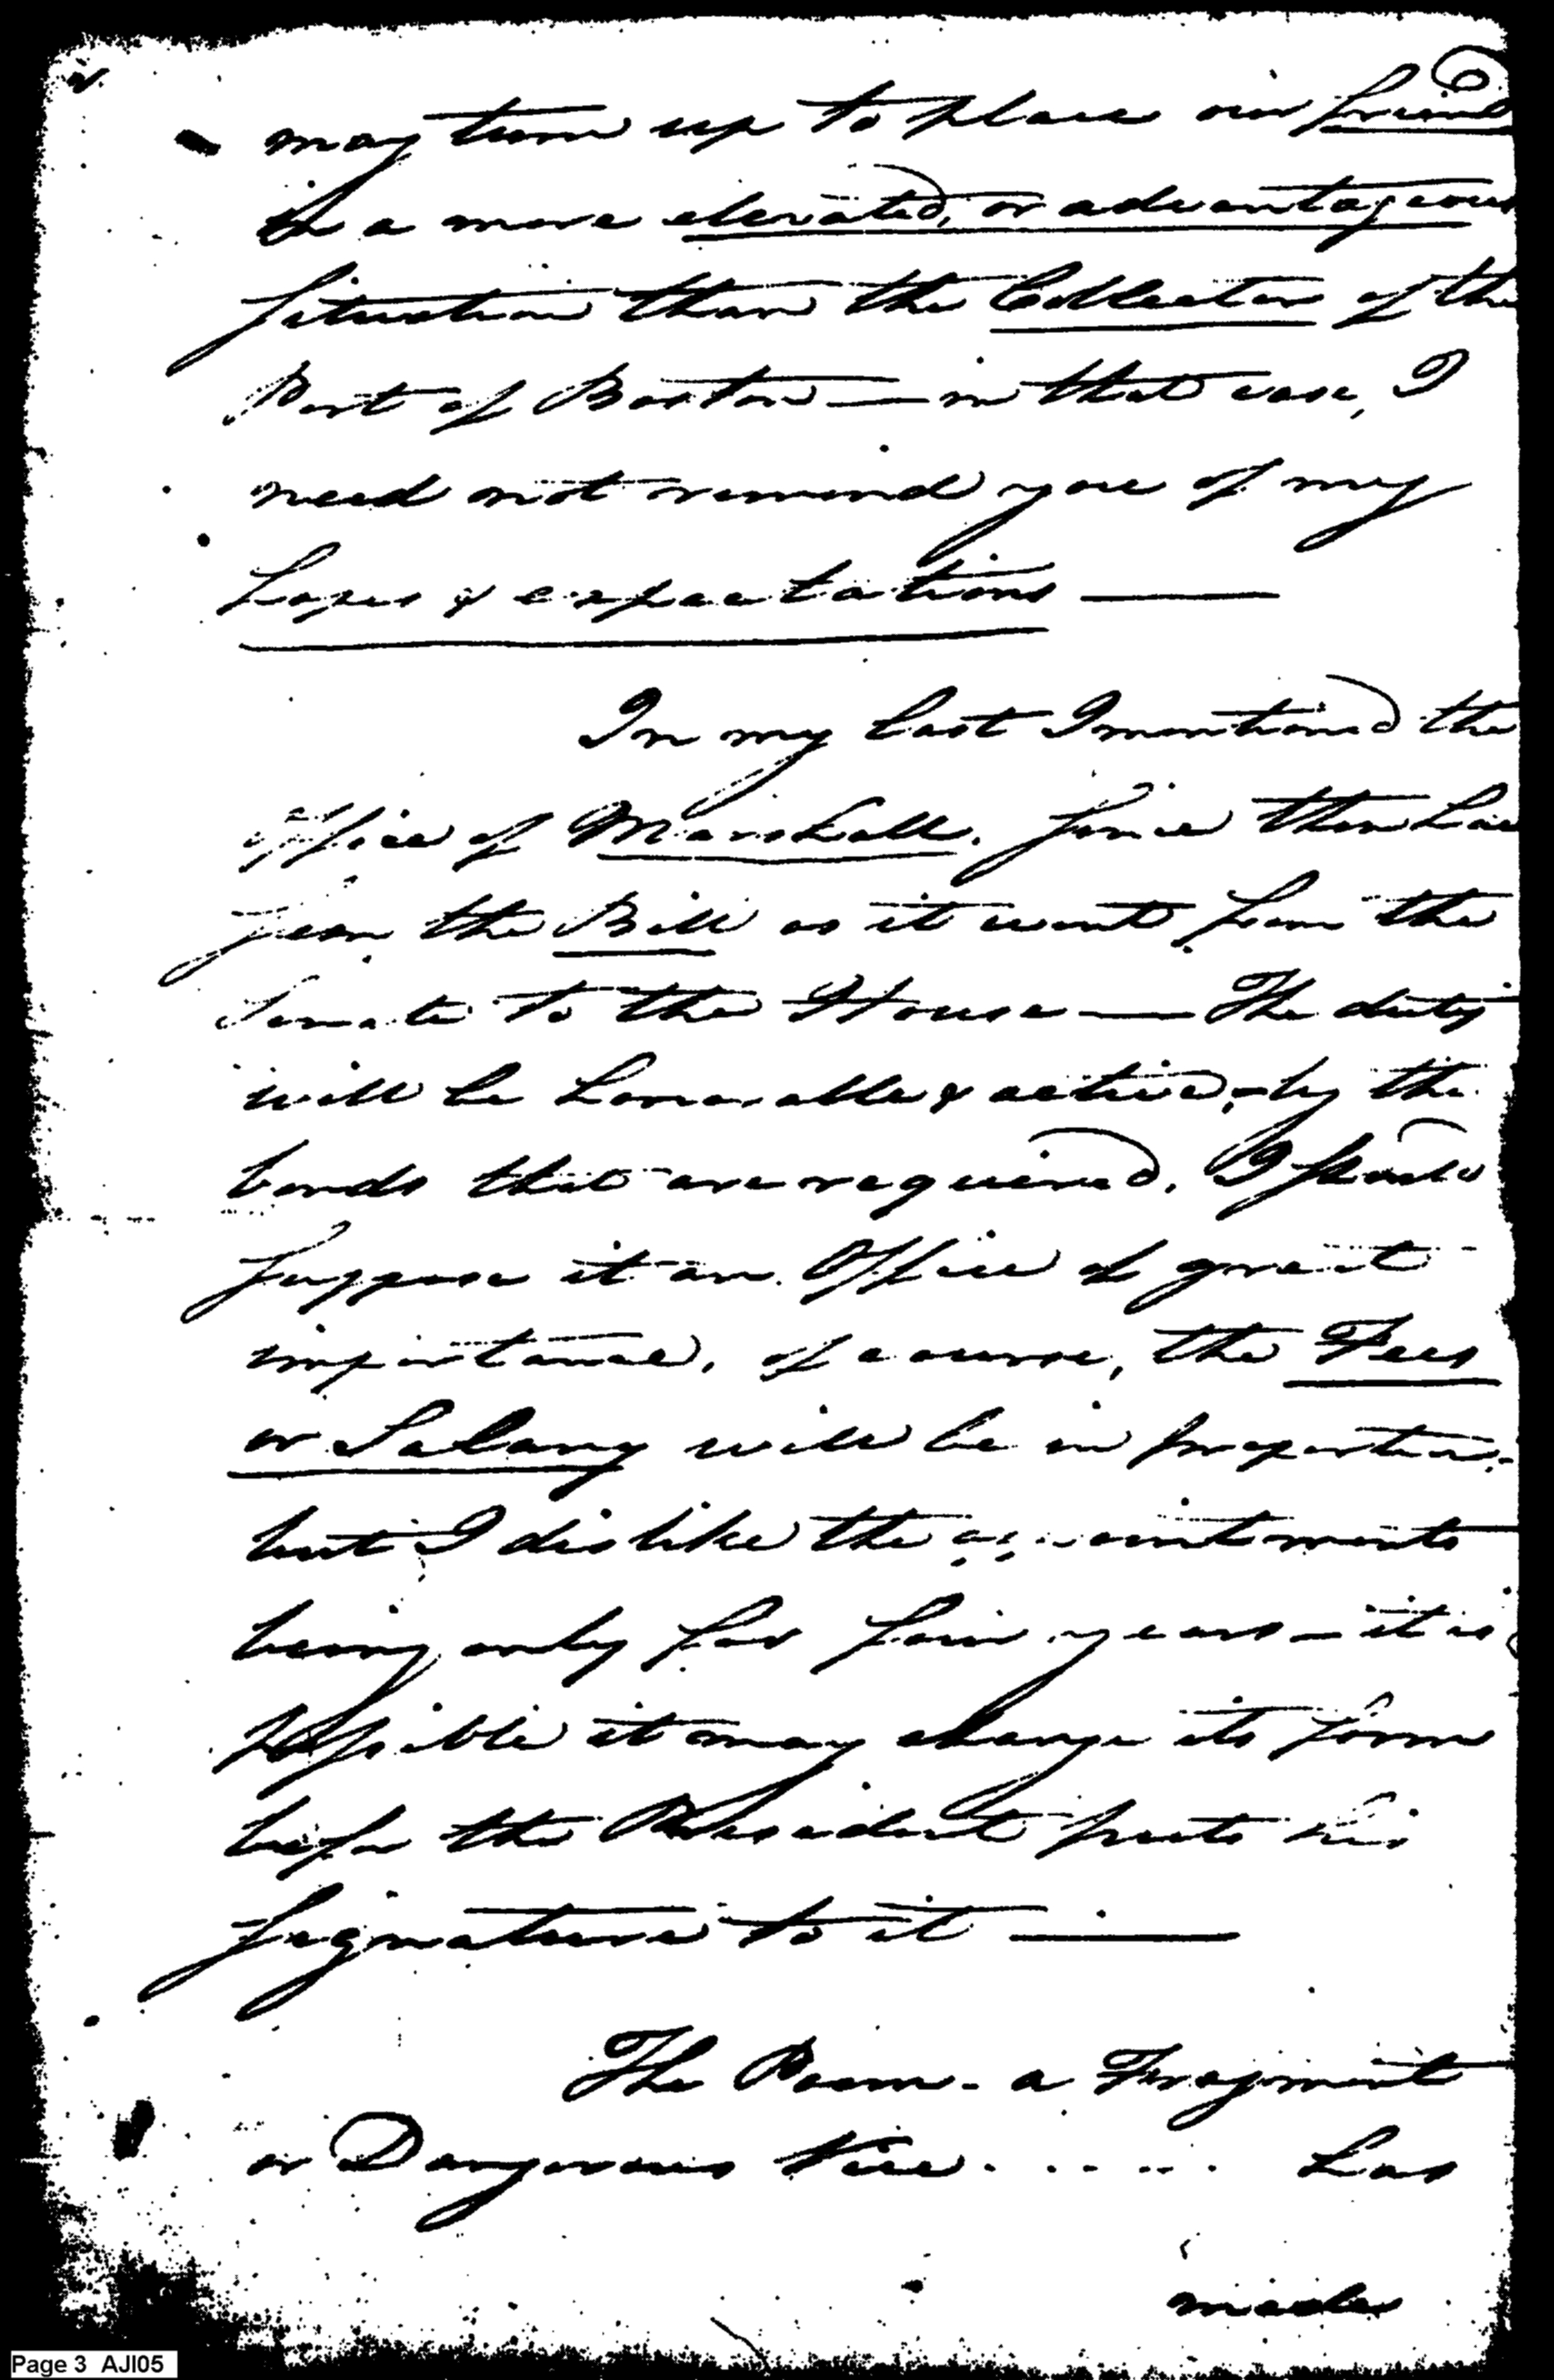 may turn up to place our friend
in a more elevated, or advantageous
situation than the Collector of the
Port of Boston — in that case, I
need not remind you of my
hopes & expectations —
In my last I mentioned the
office of Marshall. since then have
seen the Bill as it went from the
Senate to the House — The duty
will be honorable & active, - by the
bonds that are required. I should
suppose it an Office of great
importance, of course, the Fees
or Salary will be in proportion -
but I dislike the appointments
being only for four years — it is
possible it may change its form
before the President puts his
signature to it —
The Poem - a Fragment
or Dangerous Vice . . . . . has
made
Page 3 AJI05